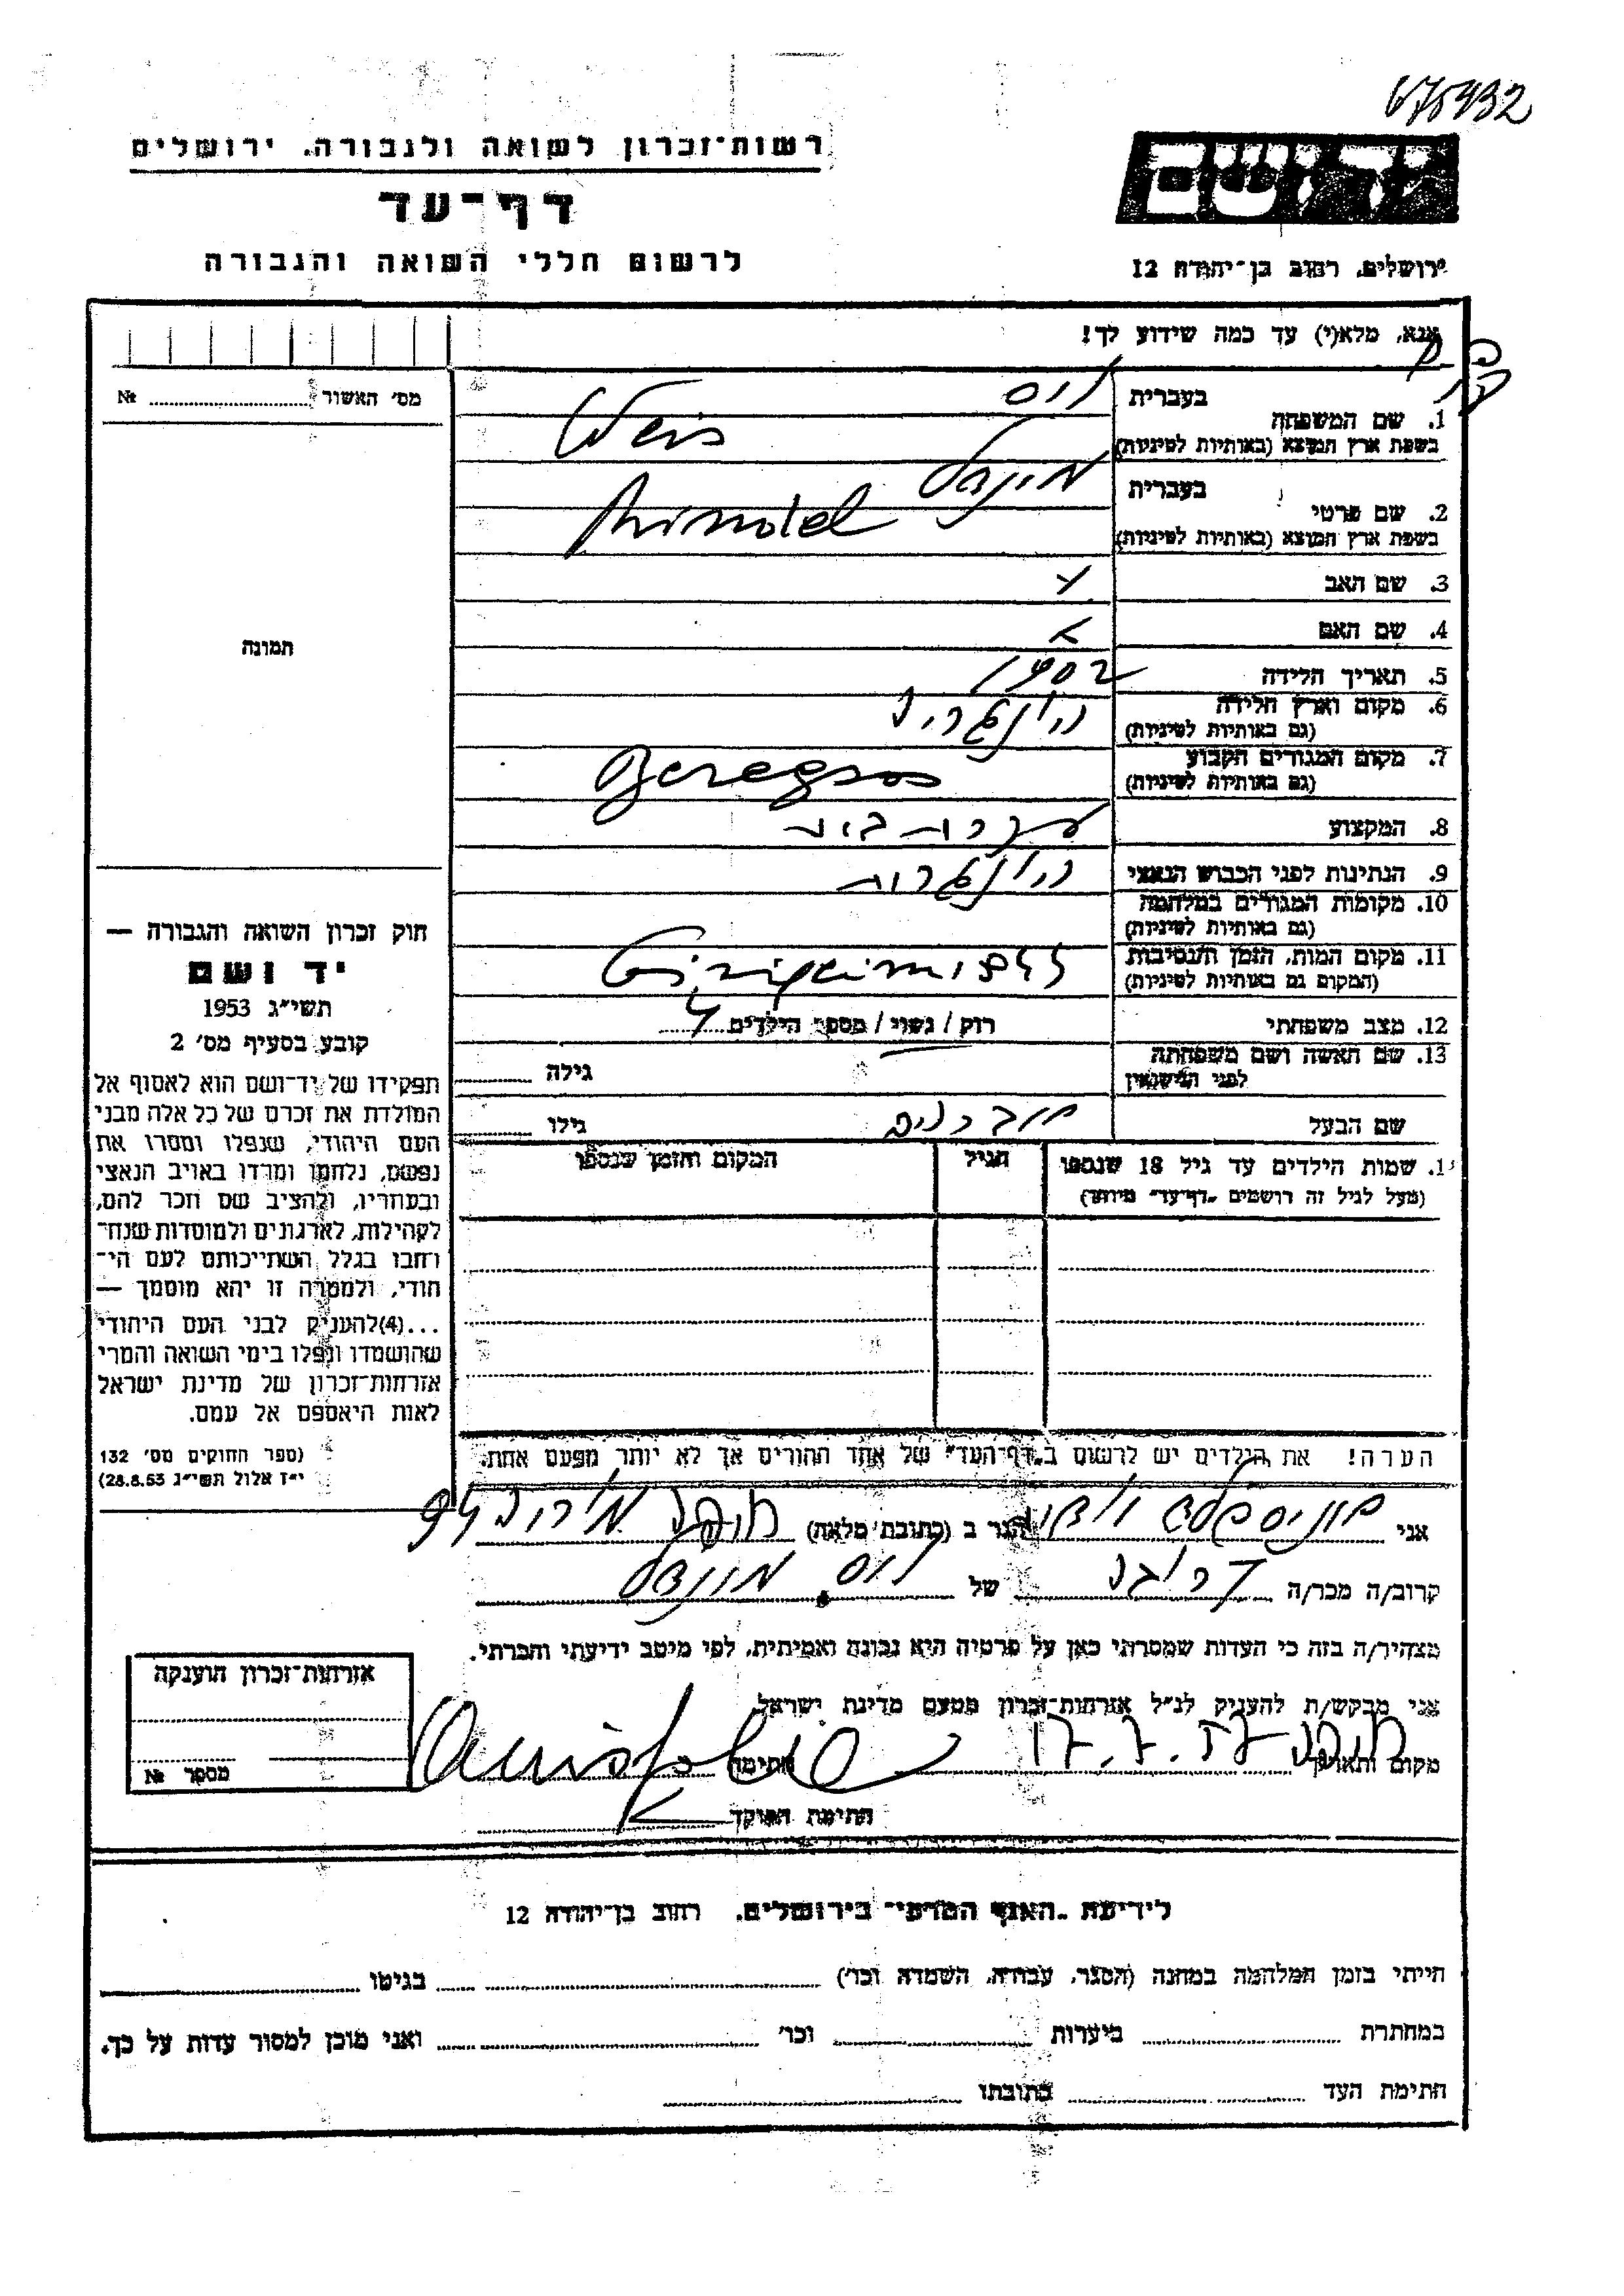 675432
רשות־זכרון לשואה ולגבורה, ירושלים
דף־עד
לרשום חללי השואה והגבורה
יד ושם
ירושלים, רחוב בן־יהודה 12
אנא, מלא(י) עד כמה שידוע לך!
מס׳ האשור № 
תמונה
בעברית
1. שם המשפחה
וייס
בשפת ארץ המוצא (באותיות לטיניות)
Weis
בעברית
2. שם פרטי
בשפת ארץ המוצא (באותיות לטיניות)
3. שם האב
4. שם האם
5. תאריך הלידה
1902
6. מקום וארץ הלידה
(גם באותיות לטיניות)
7. מקום המגורים הקבוע
(גם באותיות לטיניות)
8. המקצוע
עקרת בית
9. הנתינות לפני הכבוש הנאצי
10. מקומות המגורים במלחמה
(גם באותיות לטיניות)
11. מקום המות, הזמן והנסיבות
(המקום גם באותיות לטיניות)
12. מצב משפחתי
רוק / נשוי / מספר הילדים 4
13. שם האשה ושם משפחתה
לפני הנישואין
גילה
שם הבעל
גילו
1. שמות הילדים עד גיל 18 שנספו
(מעל לגיל זה רושמים „דף־עד״ מיוחד)
הגיל
המקום והזמן שנספו
הערה! את הילדים יש לרשום ב„דף־העד״ של אחד ההורים אך לא יותר מפעם אחת.
חוק זכרון השואה והגבורה —
יד ושם
תשי״ג 1953
קובע בסעיף מס׳ 2
תפקידו של יד־ושם הוא לאסוף אל
המולדת את זכרם של כל אלה מבני
העם היהודי, שנפלו ומסרו את
נפשם, נלחמו ומרדו באויב הנאצי
ובעוזריו, ולהציב שם וזכר להם,
לקהילות, לארגונים ולמוסדות שנח־
רבו בגלל השתייכותם לעם הי־
הודי, ולמטרה זו יהא מוסמך —
...(4)להעניק לבני העם היהודי
שהושמדו ונפלו בימי השואה והמרי
אזרחות־זכרון של מדינת ישראל
לאות היאספם אל עמם.
(ספר החוקים מס׳ 132
י״ז אלול תשי״ג 28.8.53)
אני
הגר ב (כתובת מלאה) חיפה
קרוב/ה מכר/ה
של וייס
מצהיר/ה בזה כי העדות שמסרתי כאן על פרטיה היא נכונה ואמיתית, לפי מיטב ידיעתי והכרתי.
אני מבקש/ת להעניק לנ״ל אזרחות־זכרון מטעם מדינת ישראל
מקום ותאריך חיפה 17.7.57 חתימה
חתימת הפוקד
אזרחות־זכרון הוענקה
מספר №
לידיעת „האגף המדעי״ בירושלים, רחוב בן־יהודה 12
הייתי בזמן המלחמה במחנה (הסגר, עבודה, השמדה וכו׳) בגיטו
במחתרת ביערות וכו׳ ואני מוכן למסור עדות על כך.
חתימת העד כתובתו